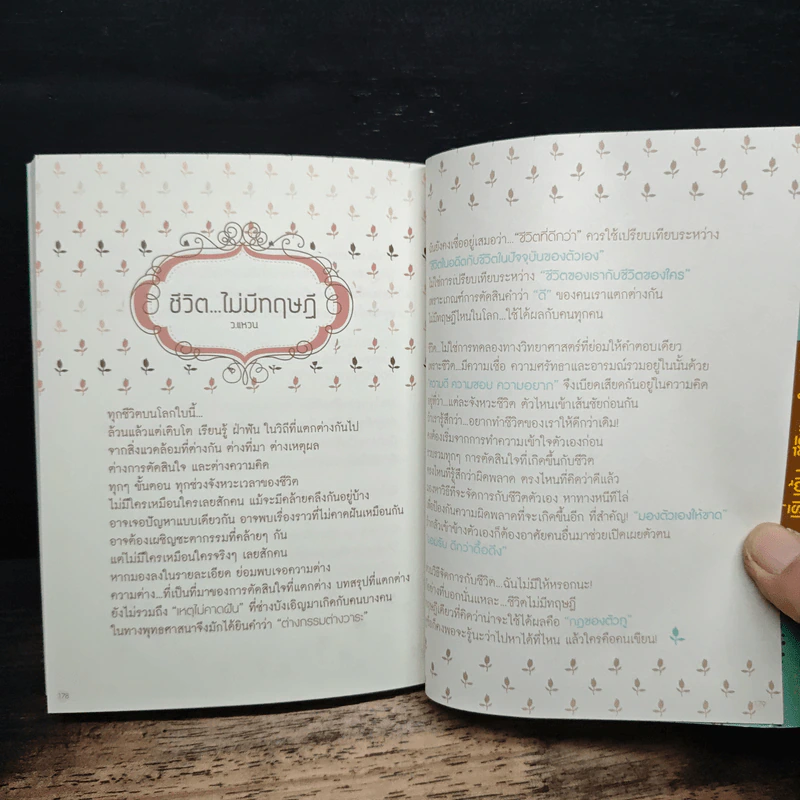 ชีวิต...ไม่มีทฤษฎี
ว.แหวน
ทุกชีวิตบนโลกใบนี้...
ล้วนแล้วแต่เติบโต เรียนรู้ ฝ่าฟัน ในวิถีที่แตกต่างกันไป
จากสิ่งแวดล้อมที่ต่างกัน ต่างที่มา ต่างเหตุผล
ต่างการตัดสินใจ และต่างความคิด
ทุกๆ ขั้นตอน ทุกช่วงจังหวะเวลาของชีวิต
ไม่มีใครเหมือนใครเลยสักคน แม้จะมีคล้ายคลึงกันอยู่บ้าง
อาจเจอปัญหาแบบเดียวกัน อาจพบเรื่องราวที่ไม่คาดฝันเหมือนกัน
อาจต้องเผชิญชะตากรรมที่คล้ายๆ กัน
แต่ไม่มีใครเหมือนใครจริงๆ เลยสักคน
หากมองลงในรายละเอียด ย่อมพบเจอความต่าง
ความต่าง...ที่เป็นที่มาของการตัดสินใจที่แตกต่าง บทสรุปที่แตกต่าง
ยังไม่รวมถึง "เหตุไม่คาดฝัน" ที่ช่างบังเอิญมาเกิดกับคนบางคน
ในทางพุทธศาสนาจึงมักได้ยินคำว่า "ต่างกรรมต่างวาระ"
178
ฉันยังคงเชื่ออยู่เสมอว่า..."ชีวิตที่ดีกว่า" ควรใช้เปรียบเทียบระหว่าง
"ชีวิตในอดีตกับชีวิตในปัจจุบันของตัวเอง"
ไม่ใช่การเปรียบเทียบระหว่าง "ชีวิตของเรากับชีวิตของใคร"
เพราะเกณฑ์การตัดสินคำว่า "ดี" ของคนเราแตกต่างกัน
ไม่มีทฤษฎีไหนในโลก...ใช้ได้ผลกับคนทุกคน
ชีวิต...ไม่ใช่การทดลองทางวิทยาศาสตร์ที่ย่อมให้คำตอบเดียว
เพราะชีวิต...มีความเชื่อ ความศรัทธาและอารมณ์รวมอยู่ในนั้นด้วย
ความชอบ ความอยาก" จึงเบียดเสียดกันอยู่ในความคิด
อยู่ที่ว่า...แต่ละจังหวะชีวิต ตัวไหนเข้าเส้นชัยก่อนกัน
ถ้าเรารู้สึกว่า...อยากทำชีวิตของเราให้ดีกว่าเดิม
ต้องเริ่มจากการทำความเข้าใจตัวเองก่อน
ทุกๆ การตัดสินใจที่เกิดขึ้นกับชีวิต
ตรงไหนที่รู้สึกว่าผิดพลาด ตรงไหนที่คิดว่าดีแล้ว
หาวิธีที่จะจัดการกับชีวิตตัวเอง หาทางหนีทีไล่
ป้องกันความผิดพลาดที่จะเกิดขึ้นอีก ที่สำคัญ! "มองตัวเองให้ขาด"
ถ้าแล้วเข้าข้างตัวเองก็ต้องอาศัยคนอื่นมาช่วยเปิดเผยตัวตน
ดีกว่าดื้อดึง"
วิธีจัดการกับชีวิต...ฉันไม่มีให้หรอกนะ!
อย่างที่บอกนั่นแหละ ...ชีวิตไม่มีทฤษฎี
ทฤษฎีเดียวที่คิดว่าน่าจะใช้ได้ผลคือ "กฎของตัวกู"
พอจะรู้นะว่าไปหาได้ที่ไหน แล้วใครคือคนเขียน!